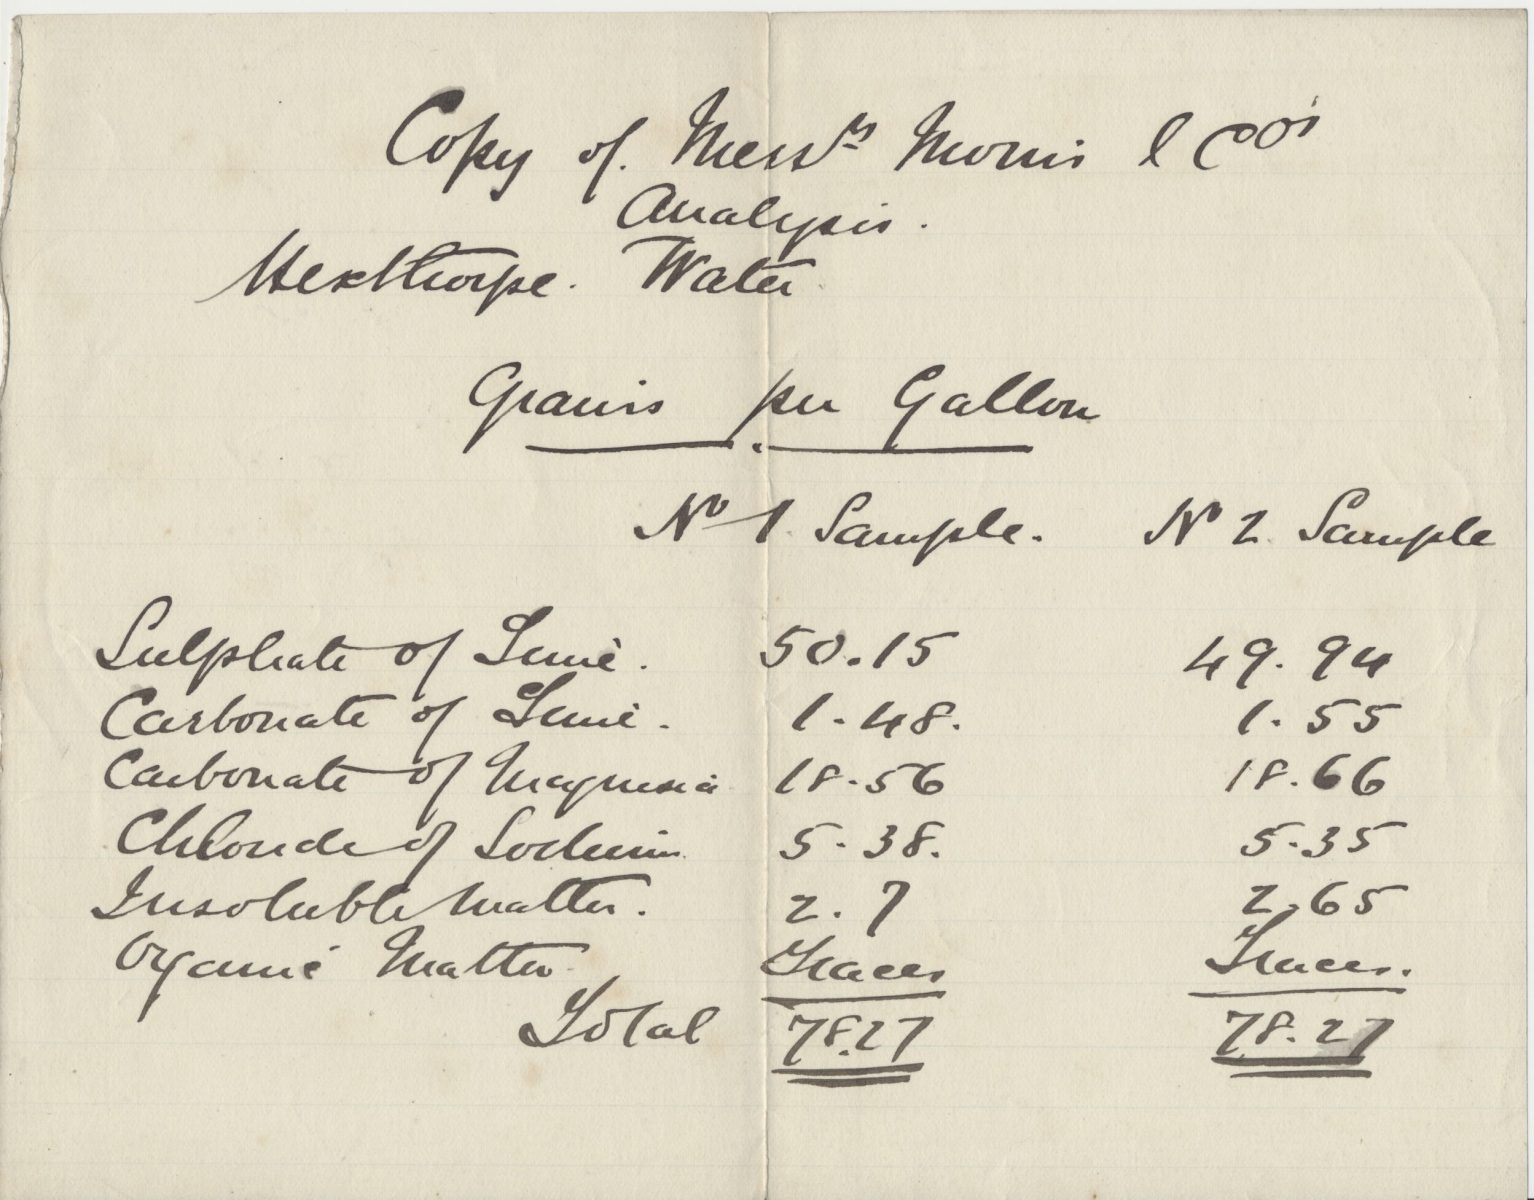 Copy of. Messrs Morris & Co's
Analysis.
Hexthorpe. Water
Grains per Gallon
No 1 Sample. No 2 Sample
Sulphate of Lime. 50.15 49.94
Carbonate of Lime. 1.48. 1.55
Carbonate of Magnesia 18.56 18.66
Chloride of Sodium 5.38. 5.35
Insoluble Matter. 2.7 2.65
Organic Matter. Traces Traces.
Total 78.27 78.27